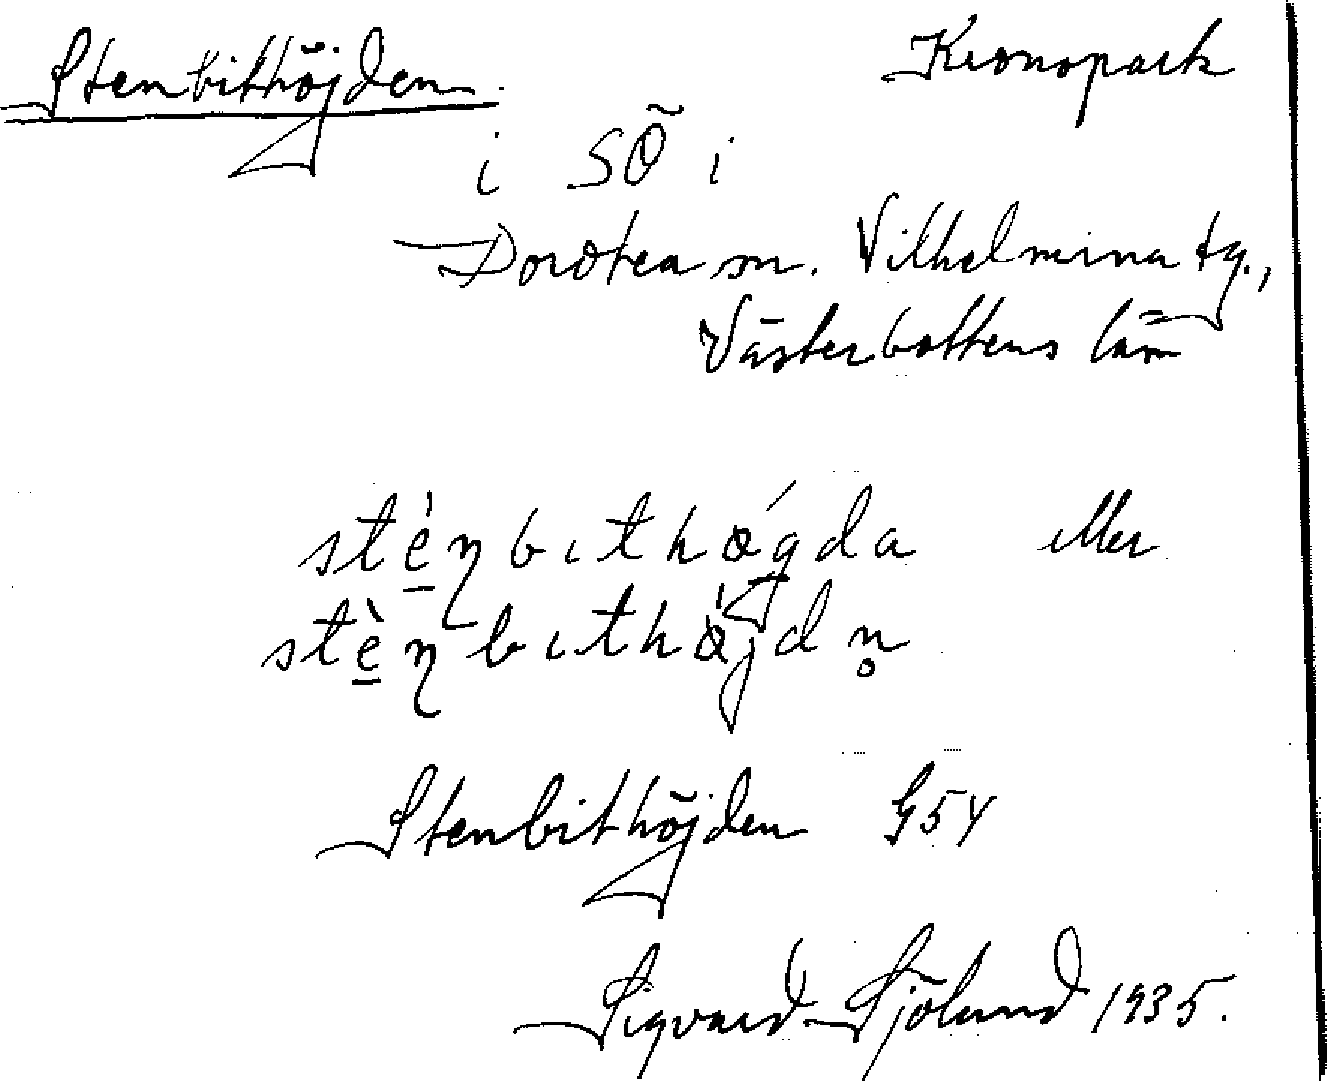 Stenbithöjden. Kronopark
i SÖ i
Dorotea sn. Vilhelmina tg.,
Västerbottens län
stè̱ŋbıthǿgda eller
stè̱ŋbıthø̀jdn̥
Stenbithöjden G54
Sigvard Sjölund 1935.